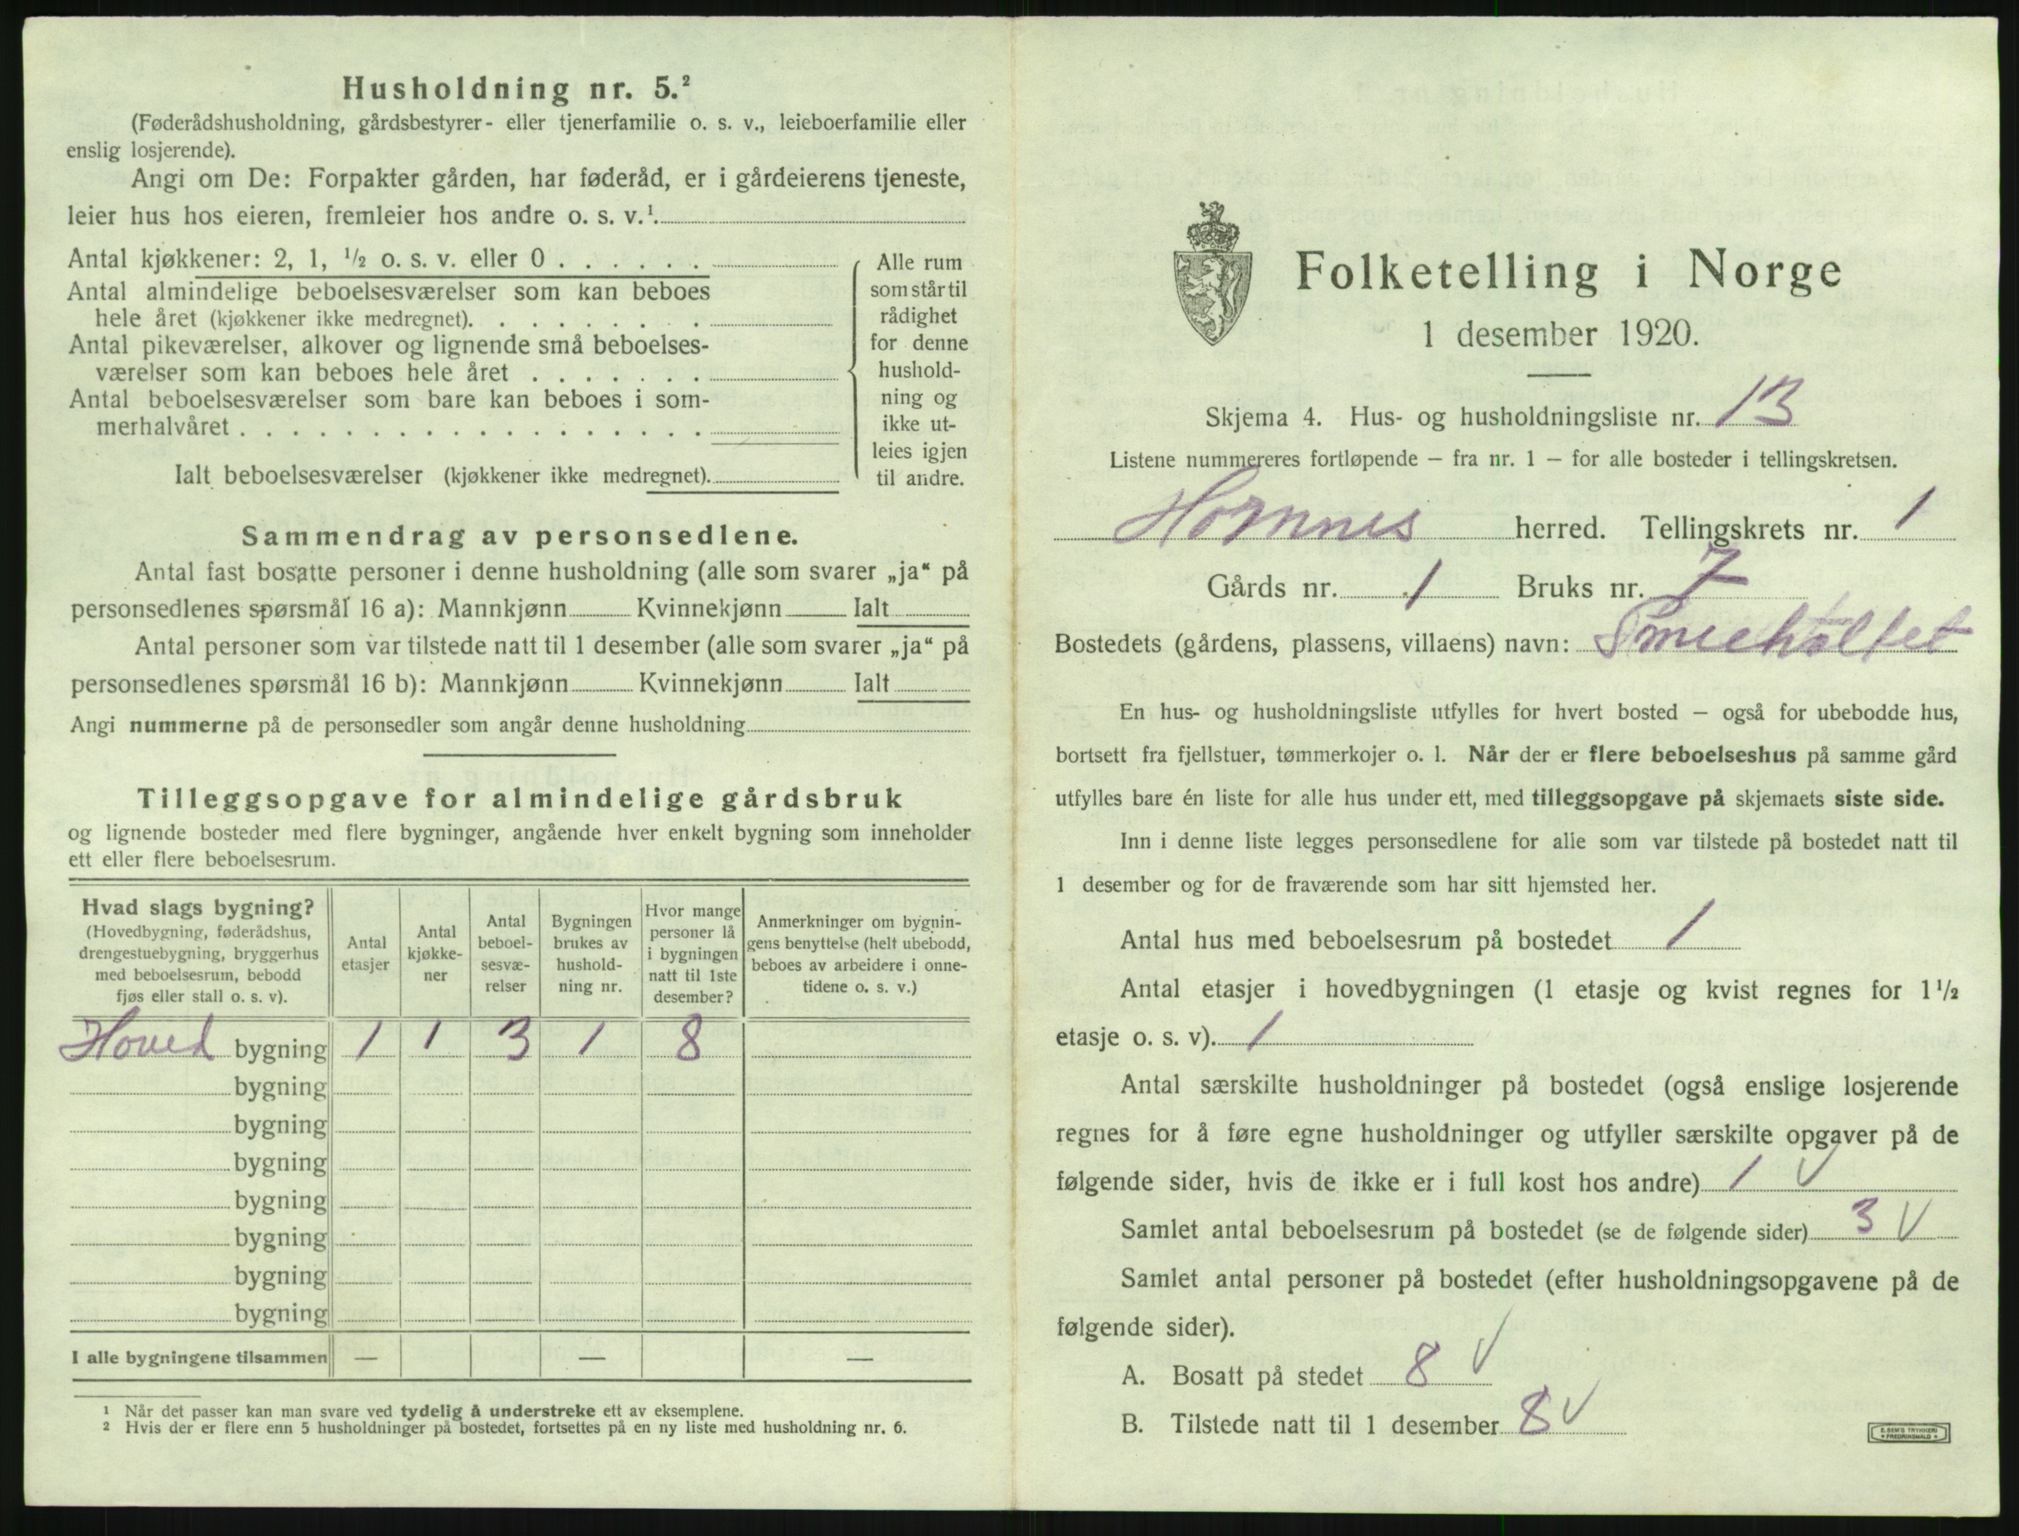 Husholdning nr. 5.²
(Føderådshusholdning, gårdsbestyrer- eller tjenerfamilie o. s. v., leieboerfamilie eller
enslig losjerende).
Angi om De: Forpakter gården, har føderåd, er i gårdeierens tjeneste,
leier hus hos eieren, fremleier hos andre o. s. v.¹
Antal kjøkkener: 2, 1, ½ o. s. v. eller 0 . . . . . .
Antal almindelige beboelsesværelser som kan beboes
hele året (kjøkkener ikke medregnet). . . . . . . .
Antal pikeværelser, alkover og lignende små beboelses-
værelser som kan beboes hele året . . . . . . .
Antal beboelsesværelser som bare kan beboes i som-
merhalvåret . . . . . . . . . . . . . . . . . .
Ialt beboelsesværelser (kjøkkener ikke medregnet).
Alle rum
som står til
rådighet
for denne
hushold-
ning og
ikke ut-
leies igjen
til andre.
Sammendrag av personsedlene.
Antal fast bosatte personer i denne husholdning (alle som svarer „ja“ på
personsedlenes spørsmål 16 a): Mannkjønn Kvinnekjønn Ialt
Antal personer som var tilstede natt til 1 desember (alle som svarer „ja“ på
personsedlenes spørsmål 16 b): Mannkjønn Kvinnekjønn Ialt
Angi nummerne på de personsedler som angår denne husholdning
Tilleggsopgave for almindelige gårdsbruk
og lignende bosteder med flere bygninger, angående hver enkelt bygning som inneholder
ett eller flere beboelsesrum.
Hvad slags bygning?
(Hovedbygning, føderådshus,
drengestuebygning, bryggerhus
med beboelsesrum, bebodd
fjøs eller stall o. s. v).
Antal
etasjer
Antal
kjøkke-
ner
Antal
beboel-
sesvæ-
relser
Bygningen
brukes av
hushold-
ning nr.
Hvor mange
personer lå
i bygningen
natt til 1ste
desember?
Anmerkninger om bygnin-
gens benyttelse (helt ubebodd,
beboes av arbeidere i onne-
tidene o. s. v.)
Hoved bygning 1 1 3 1 8
bygning
bygning
bygning
bygning
bygning
bygning
bygning
I alle bygningene tilsammen — — —
¹ Når det passer kan man svare ved tydelig å understreke ett av eksemplene.
² Hvis der er flere enn 5 husholdninger på bostedet, fortsettes på en ny liste med husholdning nr. 6.
Folketelling i Norge
1 desember 1920.
Skjema 4. Hus- og husholdningsliste nr. 13
Listene nummereres fortløpende – fra nr. 1 – for alle bosteder i tellingskretsen.
Hornnes herred. Tellingskrets nr. 1
Gårds nr. 1 Bruks nr. 7
Bostedets (gårdens, plassens, villaens) navn: Smieholtet
En hus- og husholdningsliste utfylles for hvert bosted – også for ubebodde hus,
bortsett fra fjellstuer, tømmerkojer o. l. Når der er flere beboelseshus på samme gård
utfylles bare én liste for alle hus under ett, med tilleggsopgave på skjemaets siste side.
Inn i denne liste legges personsedlene for alle som var tilstede på bostedet natt til
1 desember og for de fraværende som har sitt hjemsted her.
Antal hus med beboelsesrum på bostedet 1
Antal etasjer i hovedbygningen (1 etasje og kvist regnes for 1½
etasje o. s. v). 1
Antal særskilte husholdninger på bostedet (også enslige losjerende
regnes for å føre egne husholdninger og utfyller særskilte opgaver på de
følgende sider, hvis de ikke er i full kost hos andre) 1 V
Samlet antal beboelsesrum på bostedet (se de følgende sider) 3 V
Samlet antal personer på bostedet (efter husholdningsopgavene på de
følgende sider).
A. Bosatt på stedet 8 V
B. Tilstede natt til 1 desember 8 V
E. SEM'S TRYKKERI
FREDRIKSHALD